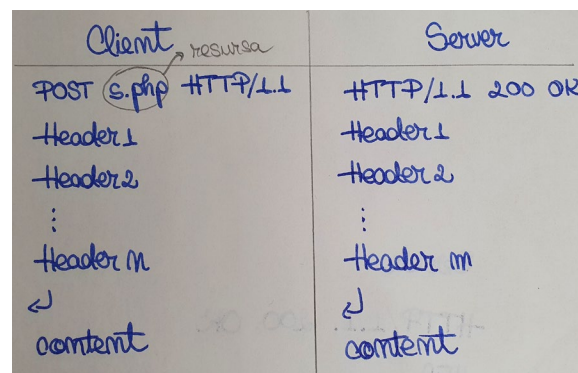 Client
resursa
POST s.php HTTP/1.1
Header 1
Header 2
⋮
Header n
↵
content
Server
HTTP/1.1 200 OK
Header 1
Header 2
⋮
Header m
↵
content